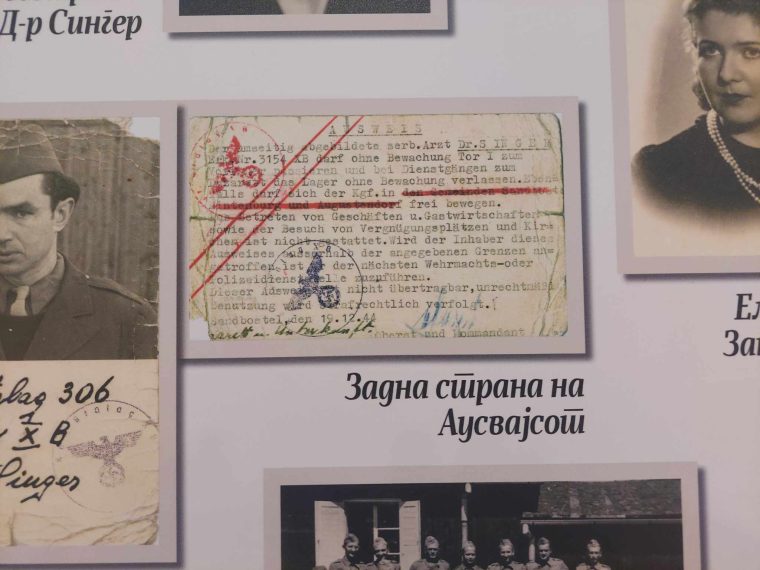 Д-р Сингер
AUSWEIS
Der umseitig abgebildete serb. Arzt Dr. SINGER
Nr. 3154 XB darf ohne Bewachung Tor I zum
passieren und bei Dienstgängen zum
das Lager ohne Bewachung verlassen.
falls darf sich der Kgf. in den Gemeinden
und Augustendorf frei bewegen.
Betreten von Geschäften u. Gastwirtschaften
sowie der Besuch von Vergnügungsplätzen und Kir-
chen ist nicht gestattet. Wird der Inhaber dieses
Ausweises ausserhalb der angegebenen Grenzen an-
getroffen ist der nächsten Wehrmachts- oder
Polizeidienststelle zuzuführen.
Dieser Ausweis nicht übertragbar, unrechtmäßige
Benutzung wird strafrechtlich verfolgt.
Sandbostel den 19.12.44
Unterkunft.
Oberst und Kommandant
306
X B
Singer
Задна страна на
Аусвајсот